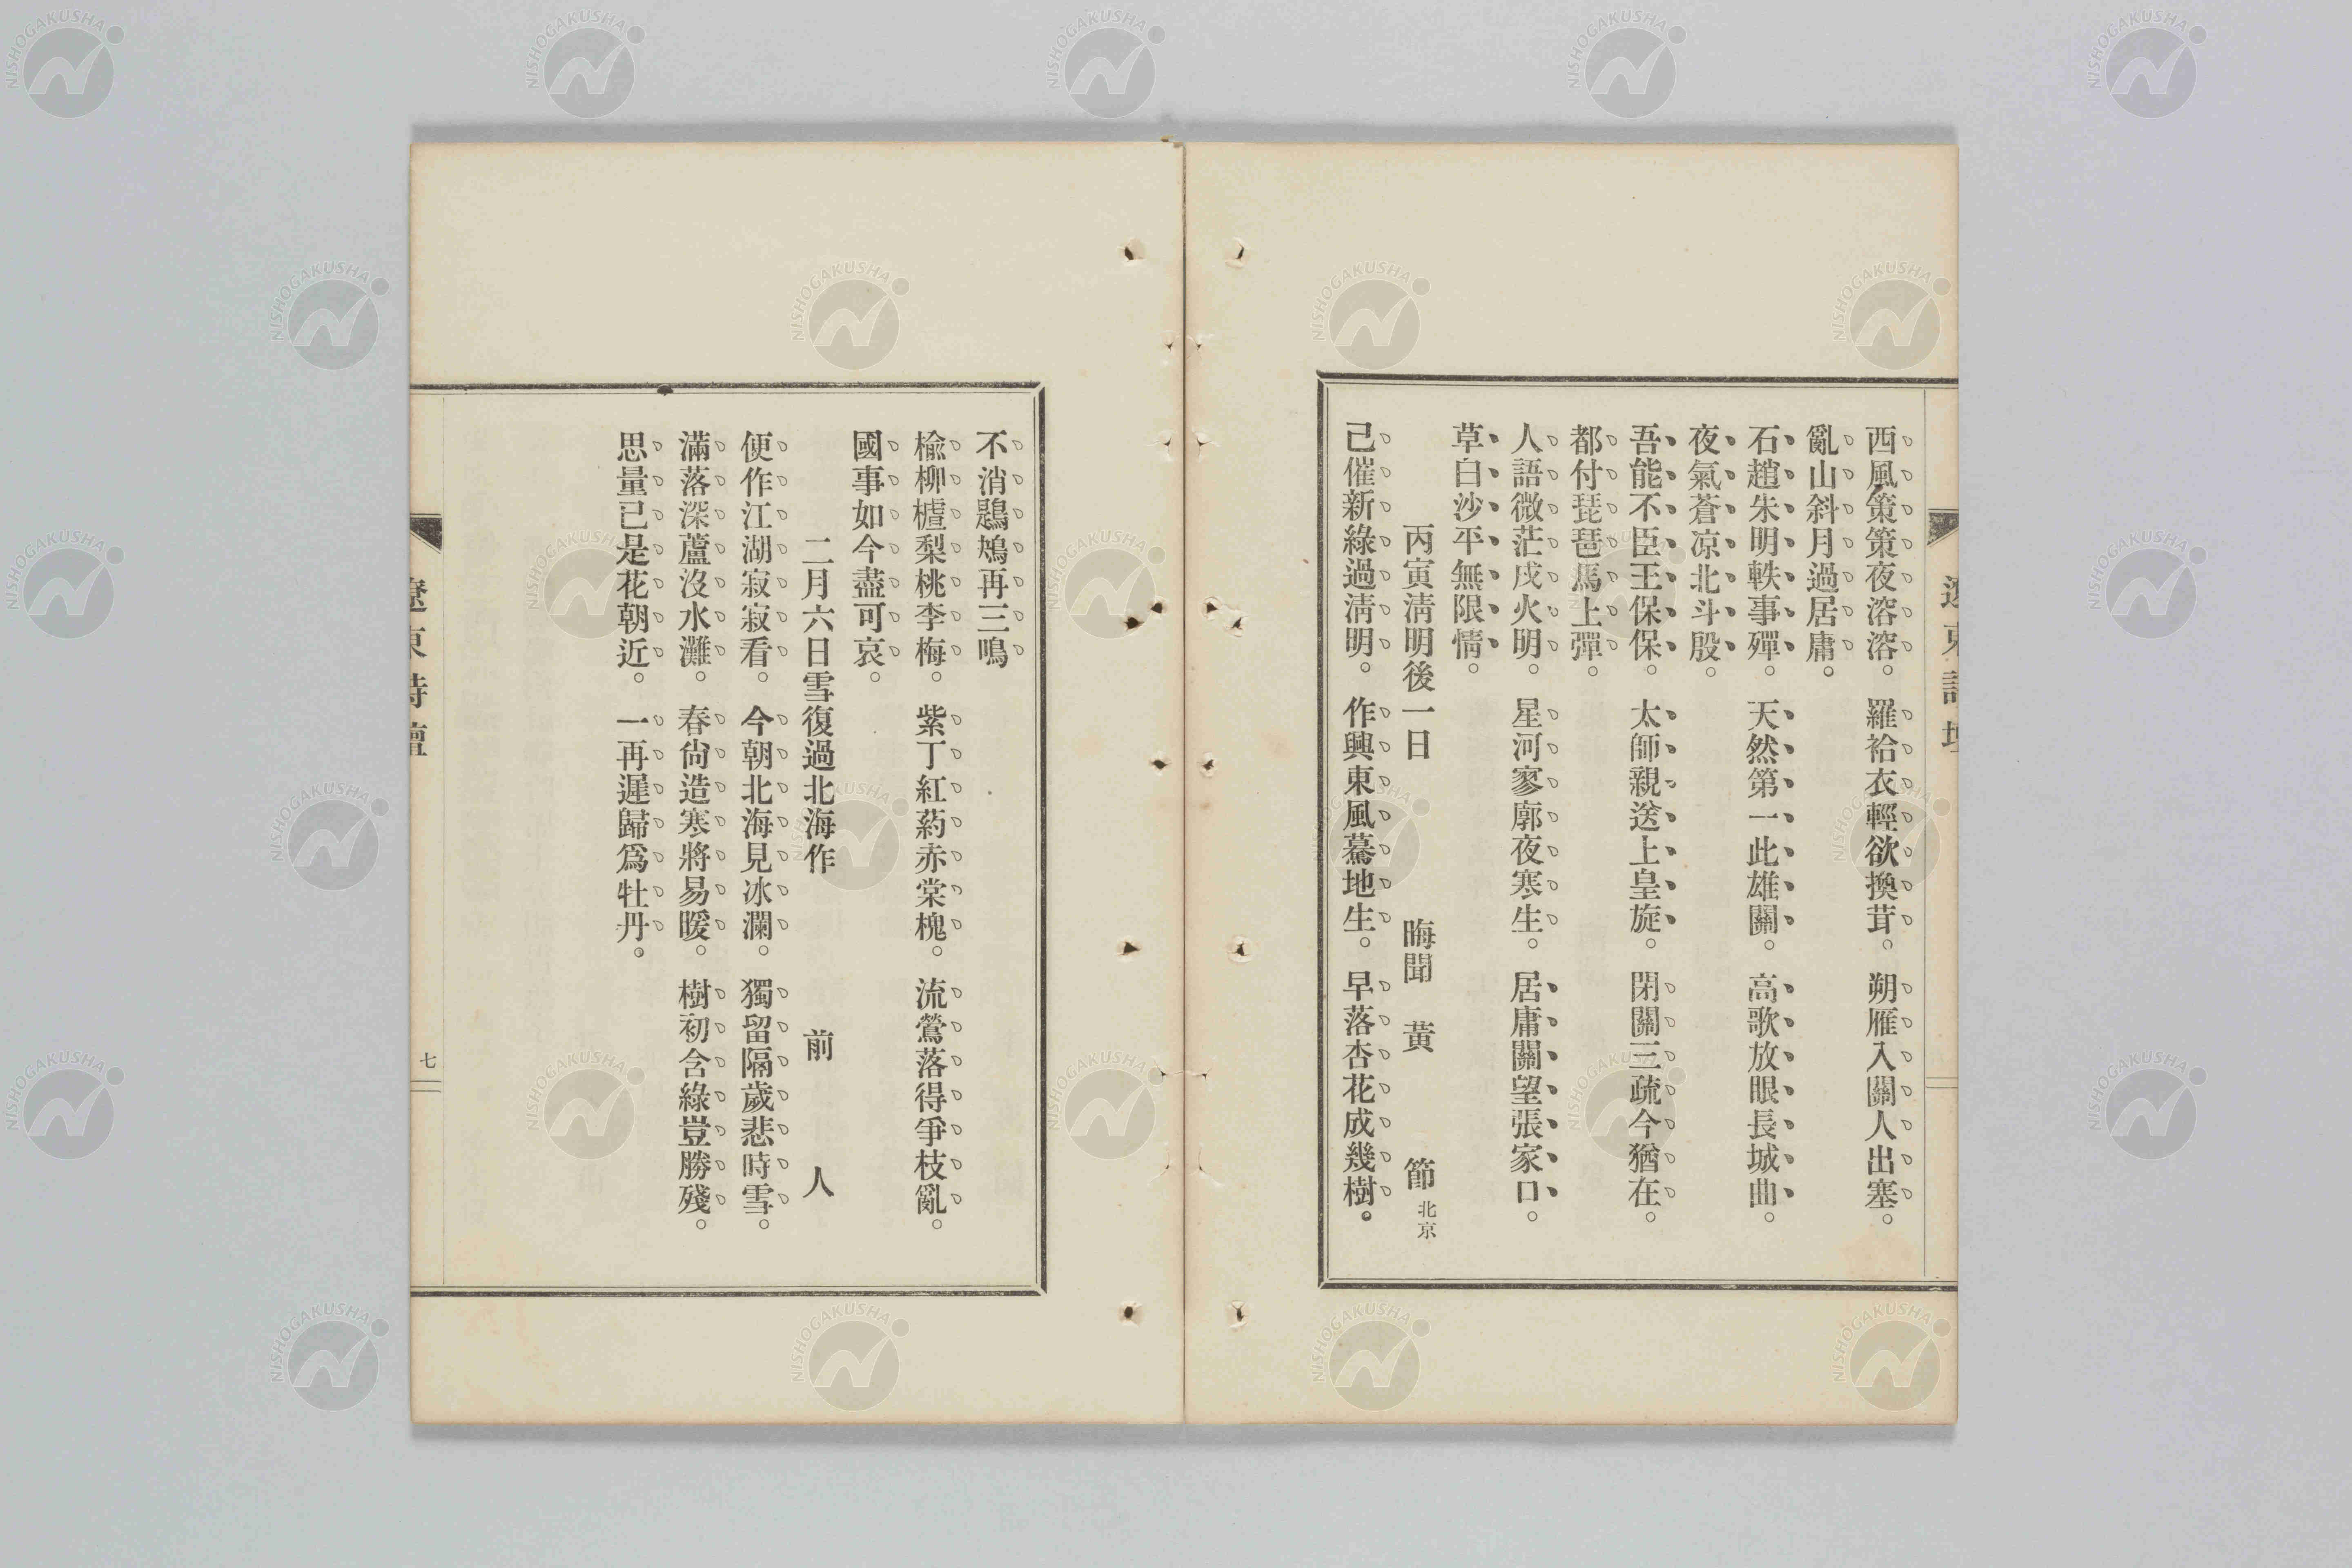 遼東詩壇
西風策策夜溶溶。羅袷衣輕欲換茸。朔雁入關人出塞。
亂山斜月過居庸。
石趙朱明軼事殫。天然第一此雄關。高歌放眼長城曲。
夜氣蒼凉北斗殷。
吾能不臣王保保。太師親送上皇旋。閉關三疏今猶在。
都付琵琶馬上彈。
人語微茫戍火明。星河寥廓夜寒生。居庸關望張家口。
草白沙平無限情。
丙寅淸明後一日　晦聞　黃　節 北京
已催新綠過淸明。作興東風驀地生。早落杏花成幾樹。
不消鶗鴂再三鳴
楡柳樝梨桃李梅。紫丁紅葯赤棠槐。流鶯落得爭枝亂。
國事如今盡可哀。
二月六日雪復過北海作　前　人
便作江湖寂寂看。今朝北海見冰瀾。獨留隔歲悲時雪。
滿落深蘆沒水灘。春尙造寒將易暖。樹初含綠豈勝殘。
思量已是花朝近。一再遲歸爲牡丹。
遼東詩壇
七
NISHOGAKUSHA